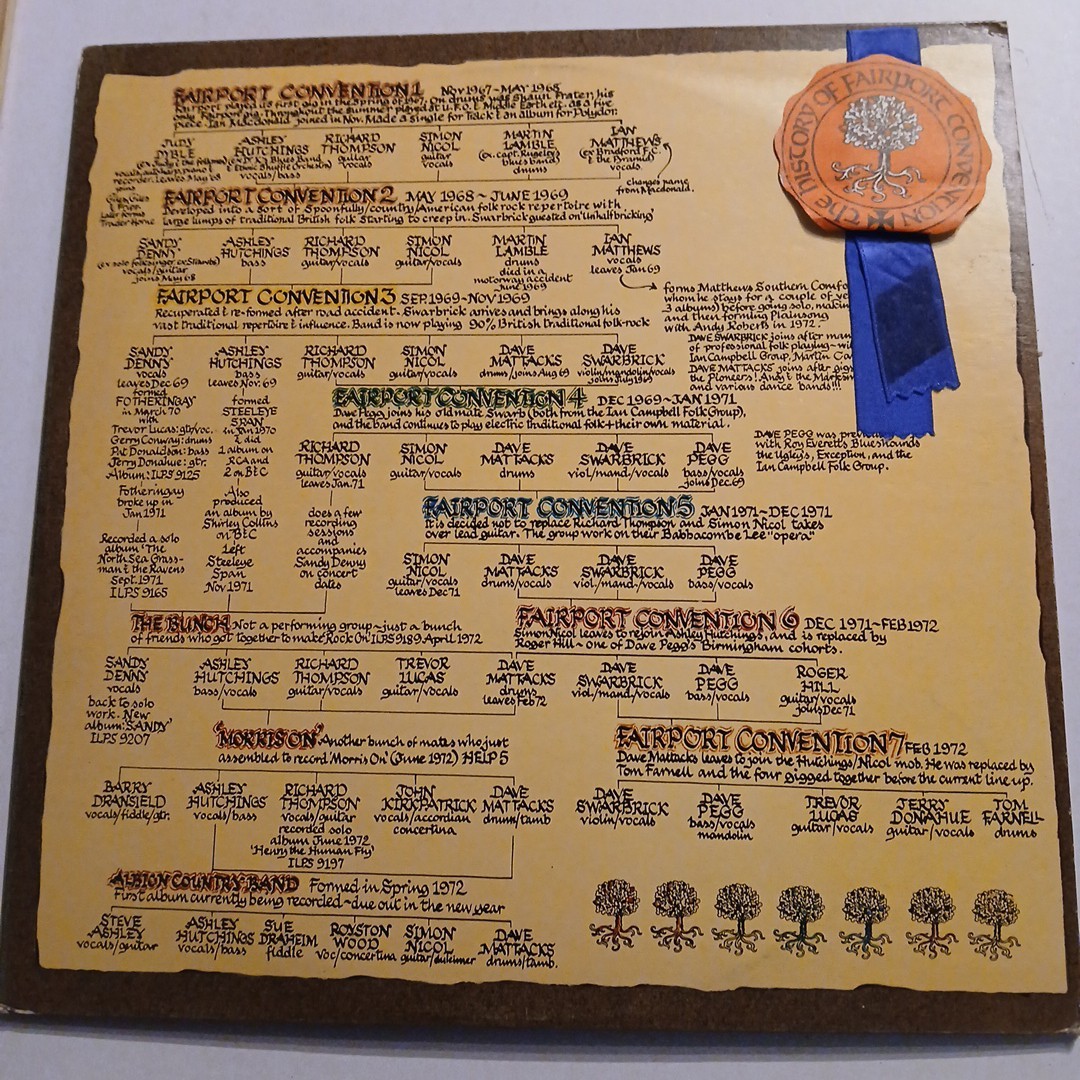 FAIRPORT CONVENTION 1 NOV 1967~MAY 1968
Fairport played its first gig in the Spring of 1967. On drums was Shaun Frater, his
only Fairport gig. Throughout the summer played at U.F.O. & Middle Earth etc. as a five
piece. Ian Macdonald joined in Nov. Made a single for Track & an album for Polydor.
JUDY DYBLE
vocals/autoharp/piano & recorder. leaves May 68
joins Giles, Giles & Fripp. later forms Trader Horne
ASHLEY HUTCHINGS
vocals/bass
RICHARD THOMPSON
guitar/vocals
SIMON NICOL
guitar/vocals
MARTIN LAMBLE
drums
IAN MATTHEWS
(ex Bradford F.C. & the Pyramid)
vocals
changes name
from Macdonald.
FAIRPORT CONVENTION 2 MAY 1968 ~ JUNE 1969
Developed into a sort of Spoonfully/country/American folk rock repertoire with
large lumps of traditional British folk starting to creep in. Swarbrick guested on 'Unhalfbricking'
SANDY DENNY
(ex solo folksinger, ex Strawbs)
vocals/guitar
joins May 68
ASHLEY HUTCHINGS
bass
RICHARD THOMPSON
guitar/vocals
SIMON NICOL
guitar/vocals
MARTIN LAMBLE
drums
died in a
motorway accident
June 1969
IAN MATTHEWS
vocals
leaves Jan 69
forms Matthews Southern Comfo
whom he stays for a couple of ye
3 albums) before going solo, makin
and then forming Plainsong
with Andy Roberts in 1972.
FAIRPORT CONVENTION 3 SEP. 1969~NOV 1969
Recuperated & re-formed after road accident. Swarbrick arrives and brings along his
vast traditional repertoire & influence. Band is now playing 90% British traditional folk-rock
DAVE SWARBRICK joins after man
of professional folk playing~wi
Ian Campbell Group, Martin Ca
DAVE MATTACKS joins after gigs
the Pioneers! Andy & the Marksm
and various dance bands!!!
SANDY DENNY
vocals
leaves Dec 69
ASHLEY HUTCHINGS
bass
leaves Nov. 69
RICHARD THOMPSON
guitar/vocals
SIMON NICOL
guitar/vocals
DAVE MATTACKS
drums/joins Aug 69
DAVE SWARBRICK
violin/mandolin/vocals
joins July 1969
formed
FOTHERINGAY
in March 70
with
Trevor Lucas: gtr/voc.
Gerry Conway: drums
Pat Donaldson: bass
Jerry Donahue: gtr.
Album: ILPS 9125
Fotheringay
broke up in
Jan 1971
Recorded a solo
album 'The
North Sea Grass-
man & the Ravens
Sept. 1971
ILPS 9165
formed
STEELEYE
SPAN
in Jan 1970
& did
1 album on
RCA and
2 on B&C
Also
produced
an album by
Shirley Collins
on B&C
Left
Steeleye
Span
Nov 1971
FAIRPORT CONVENTION 4 DEC 1969~JAN 1971
Dave Pegg joins his old mate Swarb (both from the Ian Campbell Folk Group),
and the band continues to play electric traditional folk + their own material.
DAVE PEGG was previou
with Roy Everett's Blueshounds
the Ugly's, Exception, and the
Ian Campbell Folk Group.
RICHARD THOMPSON
guitar/vocals
leaves Jan. 71
SIMON NICOL
guitar/vocals
DAVE MATTACKS
drums
DAVE SWARBRICK
viol/mand/vocals
DAVE PEGG
bass/vocals
joins Dec. 69
does a few
recording
sessions
and
accompanies
Sandy Denny
on concert
dates
FAIRPORT CONVENTION 5 JAN 1971~DEC 1971
It is decided not to replace Richard Thompson and Simon Nicol takes
over lead guitar. The group work on their Babbacombe Lee "opera"
SIMON NICOL
guitar/vocals
leaves Dec 71
DAVE MATTACKS
drums/vocals
DAVE SWARBRICK
viol./mand./vocals
DAVE PEGG
bass/vocals
THE BUNCH Not a performing group~just a bunch
of friends who got together to make 'Rock On' ILPS 9189. April 1972
SANDY DENNY
vocals
back to solo
work. New
album: 'SANDY'
ILPS 9207
ASHLEY HUTCHINGS
bass/vocals
RICHARD THOMPSON
guitar/vocals
TREVOR LUCAS
guitar/vocals
DAVE MATTACKS
drums
leaves Feb 72
FAIRPORT CONVENTION 6 DEC 1971~FEB 1972
Simon Nicol leaves to rejoin Ashley Hutchings, and is replaced by
Roger Hill ~ one of Dave Pegg's Birmingham cohorts.
DAVE SWARBRICK
viol/mand/vocals
DAVE PEGG
bass/vocals
ROGER HILL
guitar/vocals
joins Dec 71
'MORRIS ON' Another bunch of mates who just
assembled to record 'Morris On' (June 1972) HELP 5
BARRY DRANSFIELD
vocals/fiddle/gtr.
ASHLEY HUTCHINGS
vocals/bass
RICHARD THOMPSON
vocals/guitar
recorded solo
album June 1972
'Henry the Human Fly'
ILPS 9197
JOHN KIRKPATRICK
vocals/accordian
concertina
DAVE MATTACKS
drum/tamb
FAIRPORT CONVENTION 7 FEB 1972
Dave Mattacks leaves to join the Hutchings/Nicol mob. He was replaced by
Tom Farnell and the four gigged together before the current line up.
DAVE SWARBRICK
violin/vocals
DAVE PEGG
bass/vocals
mandolin
TREVOR LUCAS
guitar/vocals
JERRY DONAHUE
guitar/vocals
TOM FARNELL
drums
ALBION COUNTRY BAND Formed in Spring 1972
First album currently being recorded~due out in the new year
STEVE ASHLEY
vocals/guitar
ASHLEY HUTCHINGS
vocals/bass
SUE DRAHEIM
fiddle
ROYSTON WOOD
voc/concertina
SIMON NICOL
guitar/dulcimer
DAVE MATTACKS
drums/tamb.
the HISTORY OF FAIRPORT CONVENTION